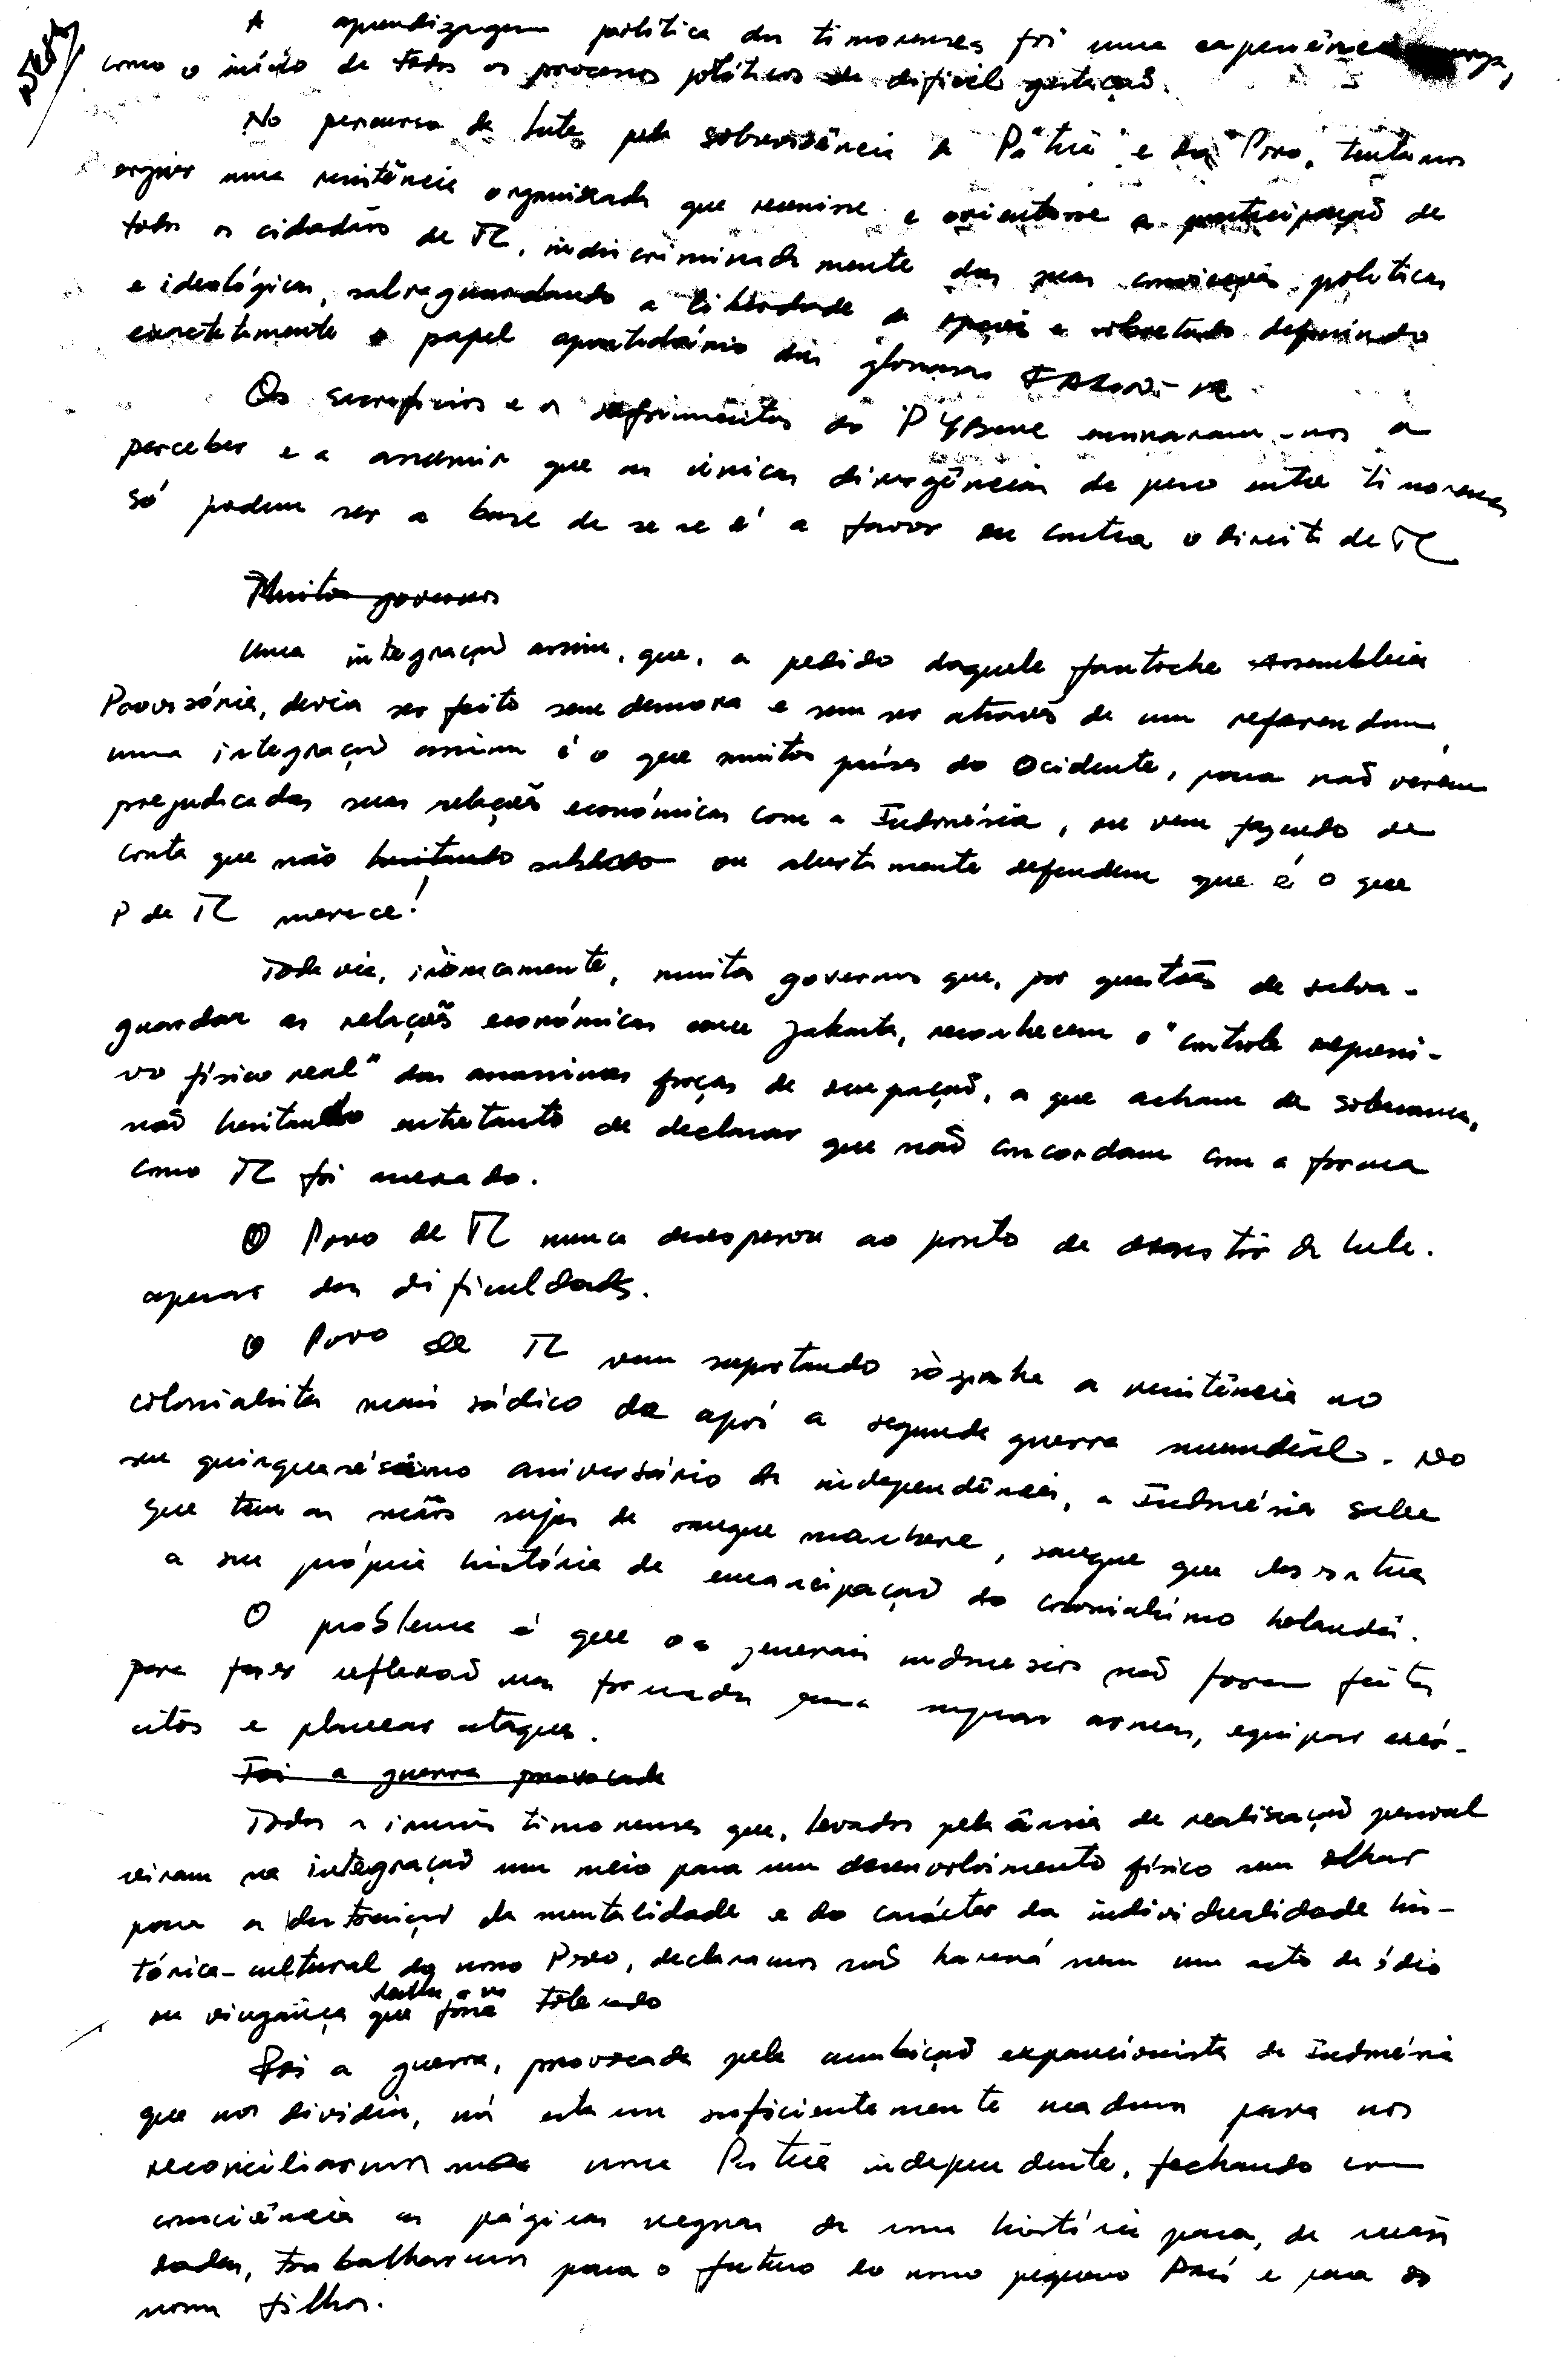 A aprendizagem política dos timorenses foi uma experiência
como o início de todos os processos políticos de difícil gestação.
No percurso da luta pela sobrevivência da Pátria e do Povo, tentamos
erguer uma resistência organizada que reunisse e orientasse a participação de
todos os cidadãos de TL, indiscriminadamente das suas convicções políticas
e ideológicas, salvaguardando a liberdade de e sobretudo definindo
correctamente o papel apartidário das gloriosas FALINTIL
Os sacrifícios e os sofrimentos do P Mbere ensinaram-nos a
perceber e a assumir que as únicas divergências de peso entre timorenses
só podem ser a base de se se é a favor ou contra o direito de TL
Muitos governos
Uma integração assim, que, a pedido daquele fantoche Assembleia
Provisória, devia ser feito sem demora e sem ser através de um referendum,
uma integração assim é o que muitos países do Ocidente, para não verem
prejudicadas suas relações económicas com a Indonésia, ou vem fazendo de
conta que não ou abertamente defendem que é o que
P de TL merece!
Todavia, irònicamente, muitos governos que, por questões de salva-
guardar as relações económicas com Jakarta, reconhecem o "controle repressi-
vo físico real" das assassinas forças de ocupação, a que acham de soberania,
não hesitando entretanto de declarar que não concordam com a forma
como TL foi anexado.
O Povo de TL nunca desesperou ao ponto de desistir da luta.
apesar das dificuldades.
O Povo de TL vem suportando sòzinho a resistência ao
colonialista mais sádico de após a segunda guerra mundial. No
seu quinquagésimo aniversário da independência, a Indonésia sabe
que tem as mãos sujas de sangue maubere, sangue que
a sua própria história de emancipação do colonialismo holandês.
O problema é que os generais indonésios não foram feitos
para fazer reflexão mas formados para manejar armas, equipar exér-
citos e planear ataques.
Foi a guerra provocada
Todos os irmãos timorenses que, levados pela ânsia de realização pessoal
viram na integração um meio para um desenvolvimento físico sem olhar
para a destruição da mentalidade e do carácter da individualidade his-
tórica-cultural do nosso Povo, declaramos não haverá nem um acto de ódio
ou vingança que possa tolerado
Foi a guerra, provocada pela ambição expansionista da Indonésia
que nos dividiu, nós estamos suficientemente maduros para nos
reconciliarmos numa Pátria independente, fechando com
consciência as páginas negras de uma história para, de mãos
dadas, trabalharmos para o futuro do nosso pequeno País e para os
nossos filhos.